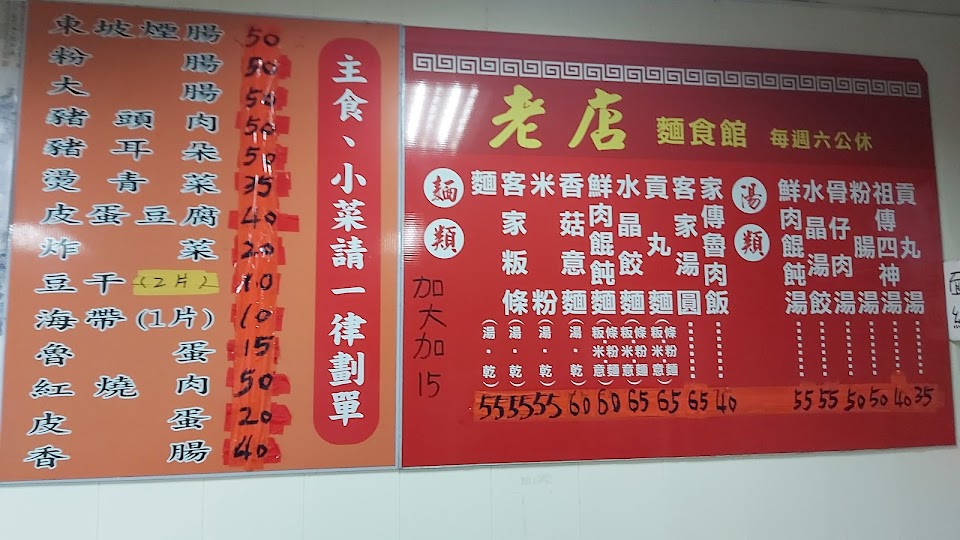 東坡煙腸 50
粉腸 50
大腸 50
豬頭肉 50
豬耳朵 50
燙青菜 35
皮蛋豆腐 40
炸菜 20
豆干(2片) 10
海帶(1片) 10
魯蛋 15
紅燒肉 50
皮蛋 20
香腸 40
主食、小菜請一律劃單
老店 麵食館 每週六公休
麵類
麵(湯·乾) 55
客家粄條(湯·乾) 55
米粉(湯·乾) 55
香菇意麵(湯·乾) 60
鮮肉餛飩麵(粄條米粉意麵) 60
水晶餃麵(粄條米粉意麵) 65
貢丸麵(粄條米粉意麵) 65
客家湯圓 65
家傳魯肉飯 40
加大加15
湯類
鮮肉餛飩湯 55
水晶湯餃 55
骨仔肉湯 50
粉腸湯 50
祖傳四神湯 40
貢丸湯 35